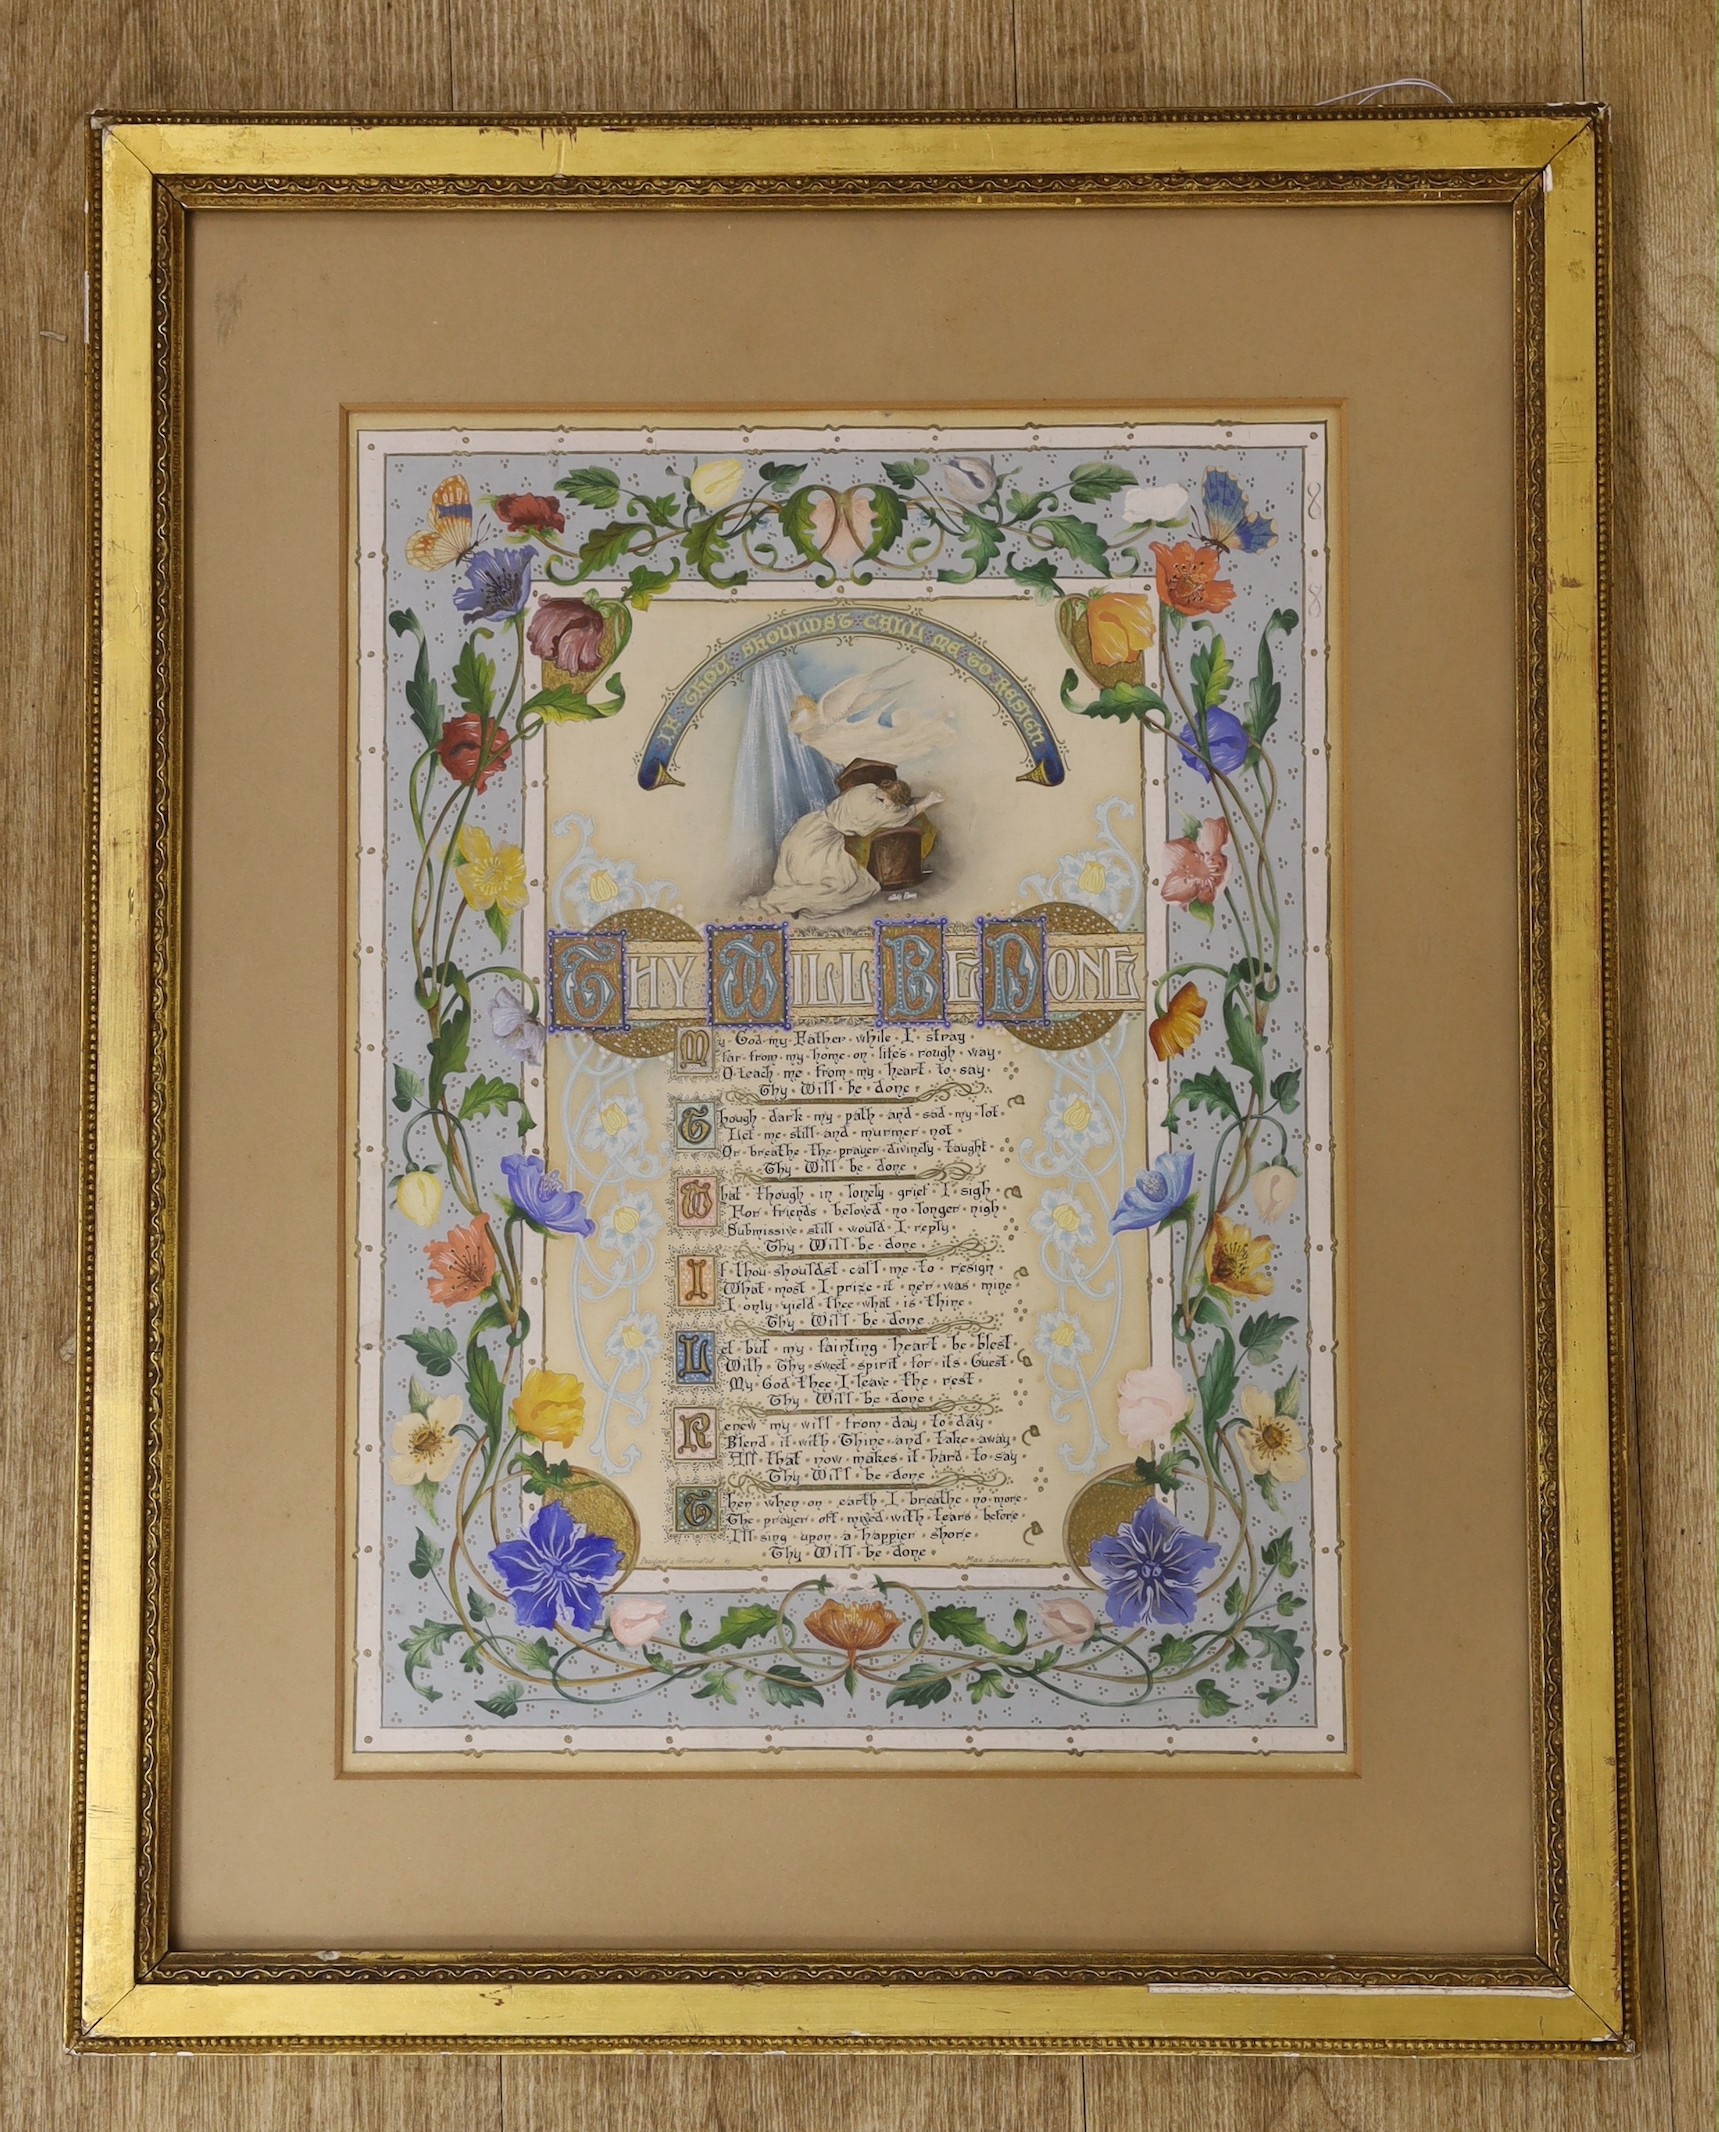 IF THOU SHOULDST CALL ME TO RESIGN
THY WILL BE DONE
My God my Father while I stray
Far from my home on life's rough way
O teach me from my heart to say
Thy Will be done
Though dark my path and sad my lot
Let me still and murmer not
Or breathe the prayer divinely taught
Thy Will be done
What though in lonely grief I sigh
For friends beloved no longer nigh
Submissive still would I reply
Thy Will be done
If thou shouldst call me to resign
What most I prize it ne'r was mine
I only yield thee what is thine
Thy Will be done
Let but my fainting heart be blest
With Thy sweet spirit for its Guest
My God thee I leave the rest
Thy Will be done
Renew my will from day to day
Blend it with Thine and take away
All that now makes it hard to say
Thy Will be done
Then when on earth I breathe no more
The prayer oft mixed with tears before
I'll sing upon a happier shore
Thy Will be done
Designed & Illuminated by Max Saunders